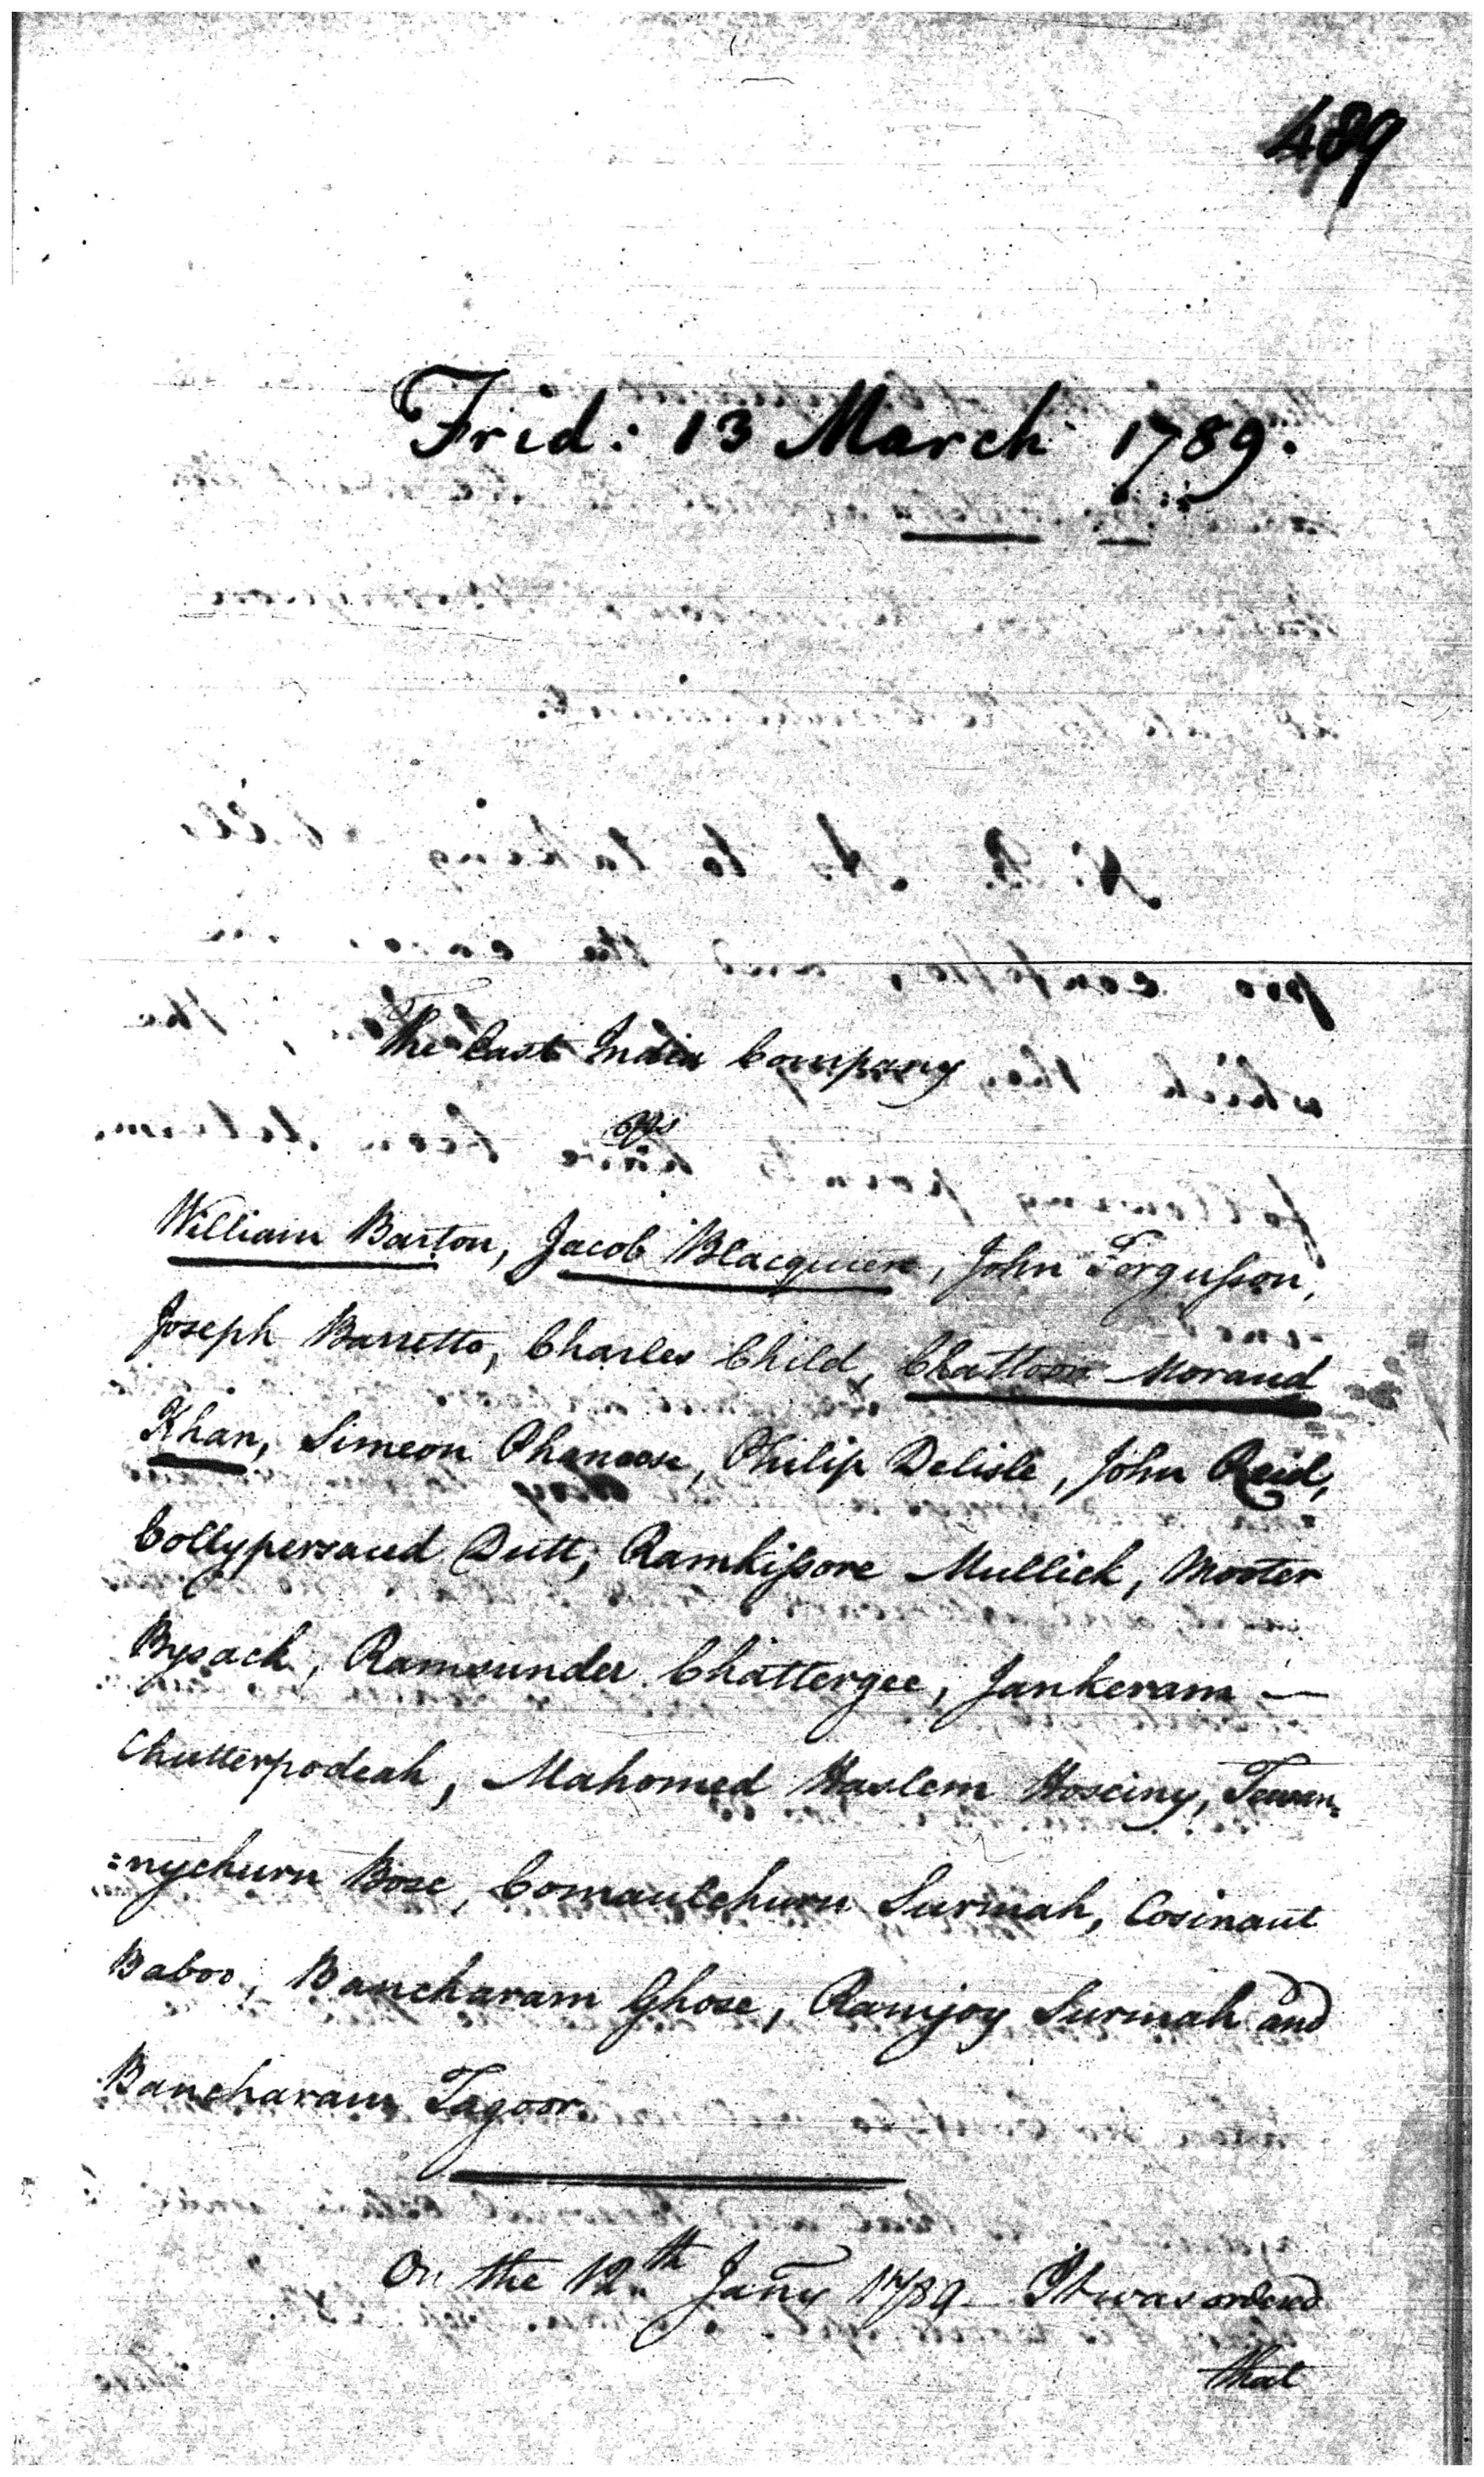 489
Frid: 13 March 1789.
The East India Company
vs
William Barton, Jacob Blacquiere, John Fergusson,
Joseph Barretto, Charles Child, Chattoor Moraud
Khan, Simeon Phanoose, Philip Delisle, John Reid,
Collypersaud Dutt, Ramkissore Mullick, Mooter
Bysack, Ramsunder Chattergee, Jankeram —
Chutterpodeah, Mahomed Haslem Hosciny,
=nychurn Bose, Comaulchurn Surmah, Cosinaut
Baboo, Bancharam Ghose, Ramjoy Surmah and
Bancharam Tagoor.
On the 12th Jany 1789 It was ordered
that